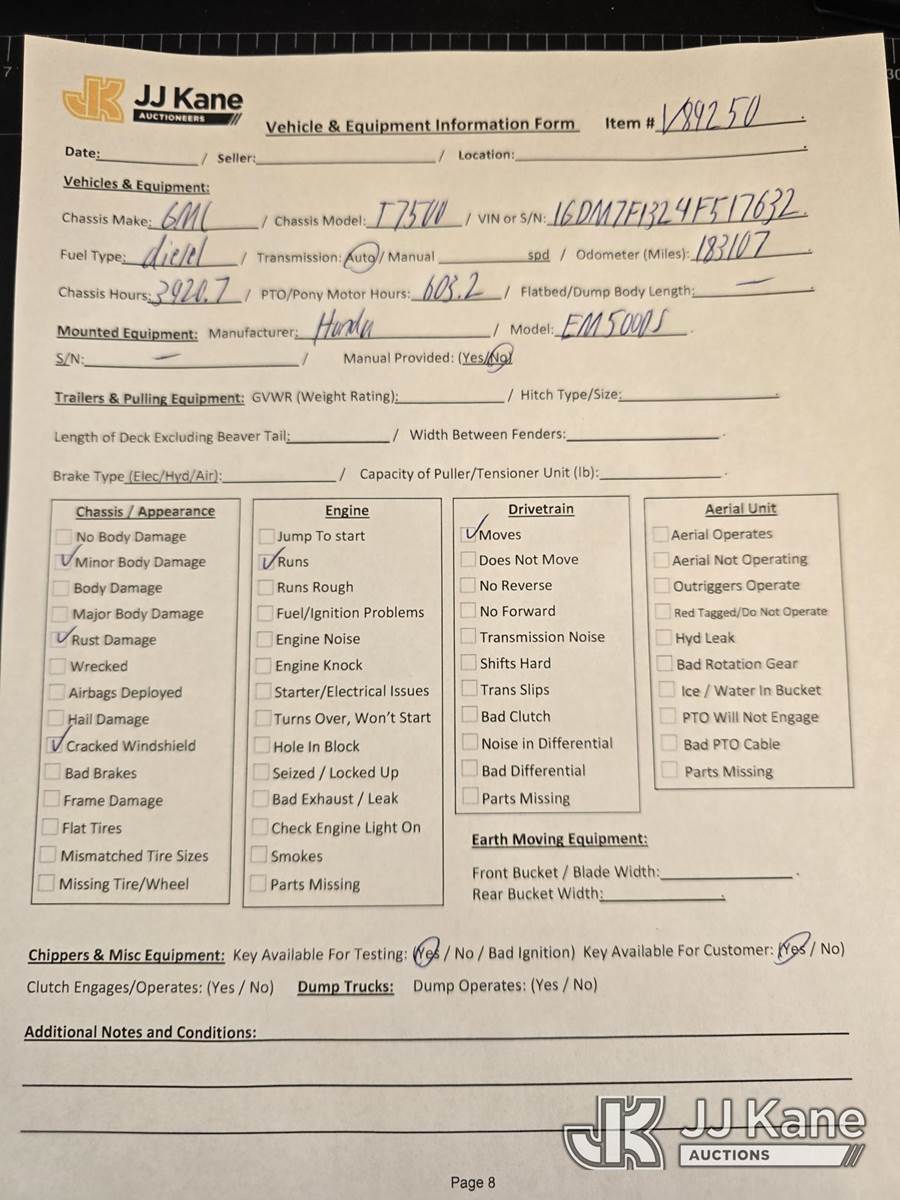 JJ Kane
AUCTIONEERS
Vehicle & Equipment Information Form Item # V89250
Date: / Seller: / Location:
Vehicles & Equipment:
Chassis Make: GMC / Chassis Model: T7500 / VIN or S/N: 1GDM7F1324F517632
Fuel Type: diesel / Transmission: Auto / Manual spd / Odometer (Miles): 183107
Chassis Hours: 3920.7 / PTO/Pony Motor Hours: 603.2 / Flatbed/Dump Body Length: —
Mounted Equipment: Manufacturer: Honda / Model: EM5000S
S/N: — / Manual Provided: (Yes/No)
Trailers & Pulling Equipment: GVWR (Weight Rating): / Hitch Type/Size:
Length of Deck Excluding Beaver Tail: / Width Between Fenders:
Brake Type (Elec/Hyd/Air): / Capacity of Puller/Tensioner Unit (lb):
Chassis / Appearance
No Body Damage
Minor Body Damage
Body Damage
Major Body Damage
Rust Damage
Wrecked
Airbags Deployed
Hail Damage
Cracked Windshield
Bad Brakes
Frame Damage
Flat Tires
Mismatched Tire Sizes
Missing Tire/Wheel
Engine
Jump To start
Runs
Runs Rough
Fuel/Ignition Problems
Engine Noise
Engine Knock
Starter/Electrical Issues
Turns Over, Won't Start
Hole In Block
Seized / Locked Up
Bad Exhaust / Leak
Check Engine Light On
Smokes
Parts Missing
Drivetrain
Moves
Does Not Move
No Reverse
No Forward
Transmission Noise
Shifts Hard
Trans Slips
Bad Clutch
Noise in Differential
Bad Differential
Parts Missing
Aerial Unit
Aerial Operates
Aerial Not Operating
Outriggers Operate
Red Tagged/Do Not Operate
Hyd Leak
Bad Rotation Gear
Ice / Water In Bucket
PTO Will Not Engage
Bad PTO Cable
Parts Missing
Earth Moving Equipment:
Front Bucket / Blade Width:
Rear Bucket Width:
Chippers & Misc Equipment: Key Available For Testing: (Yes / No / Bad Ignition) Key Available For Customer: (Yes / No)
Clutch Engages/Operates: (Yes / No) Dump Trucks: Dump Operates: (Yes / No)
Additional Notes and Conditions:
Page 8
JJ Kane
AUCTIONS